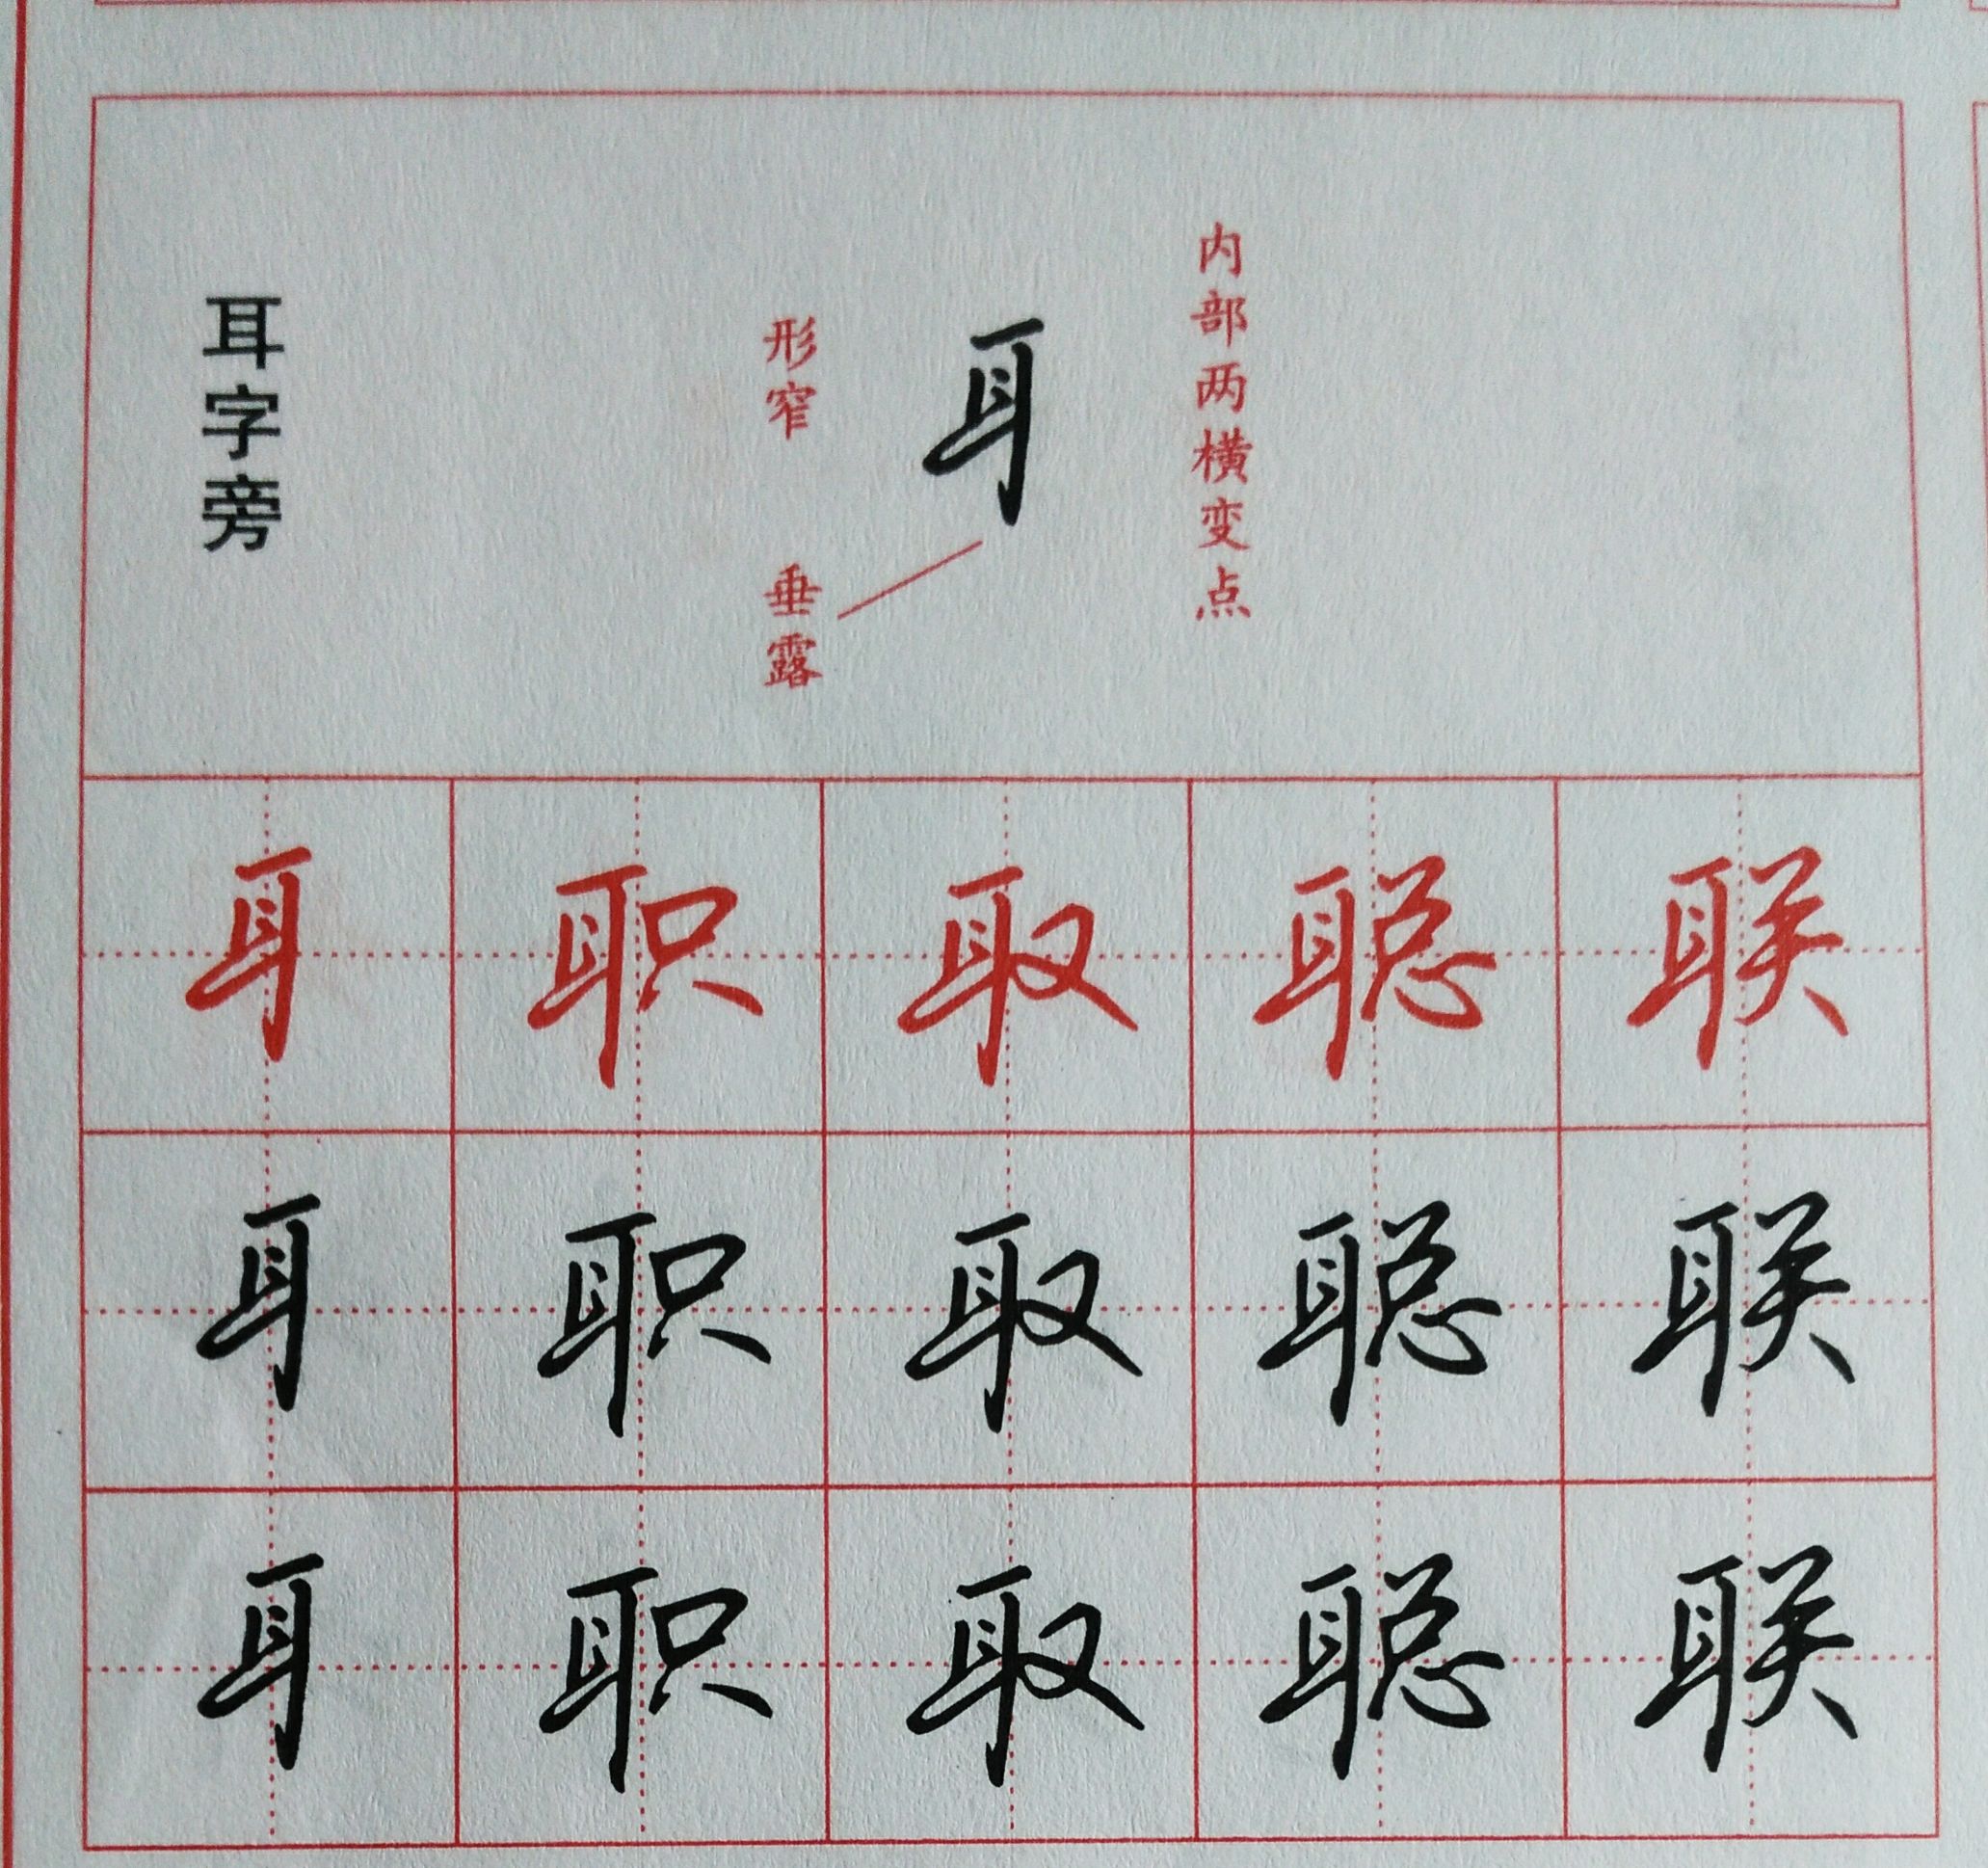 耳字旁
形窄
垂露
耳
内部两横变点
耳 职 取 聪 联
耳 职 取 聪 联
耳 职 取 聪 联